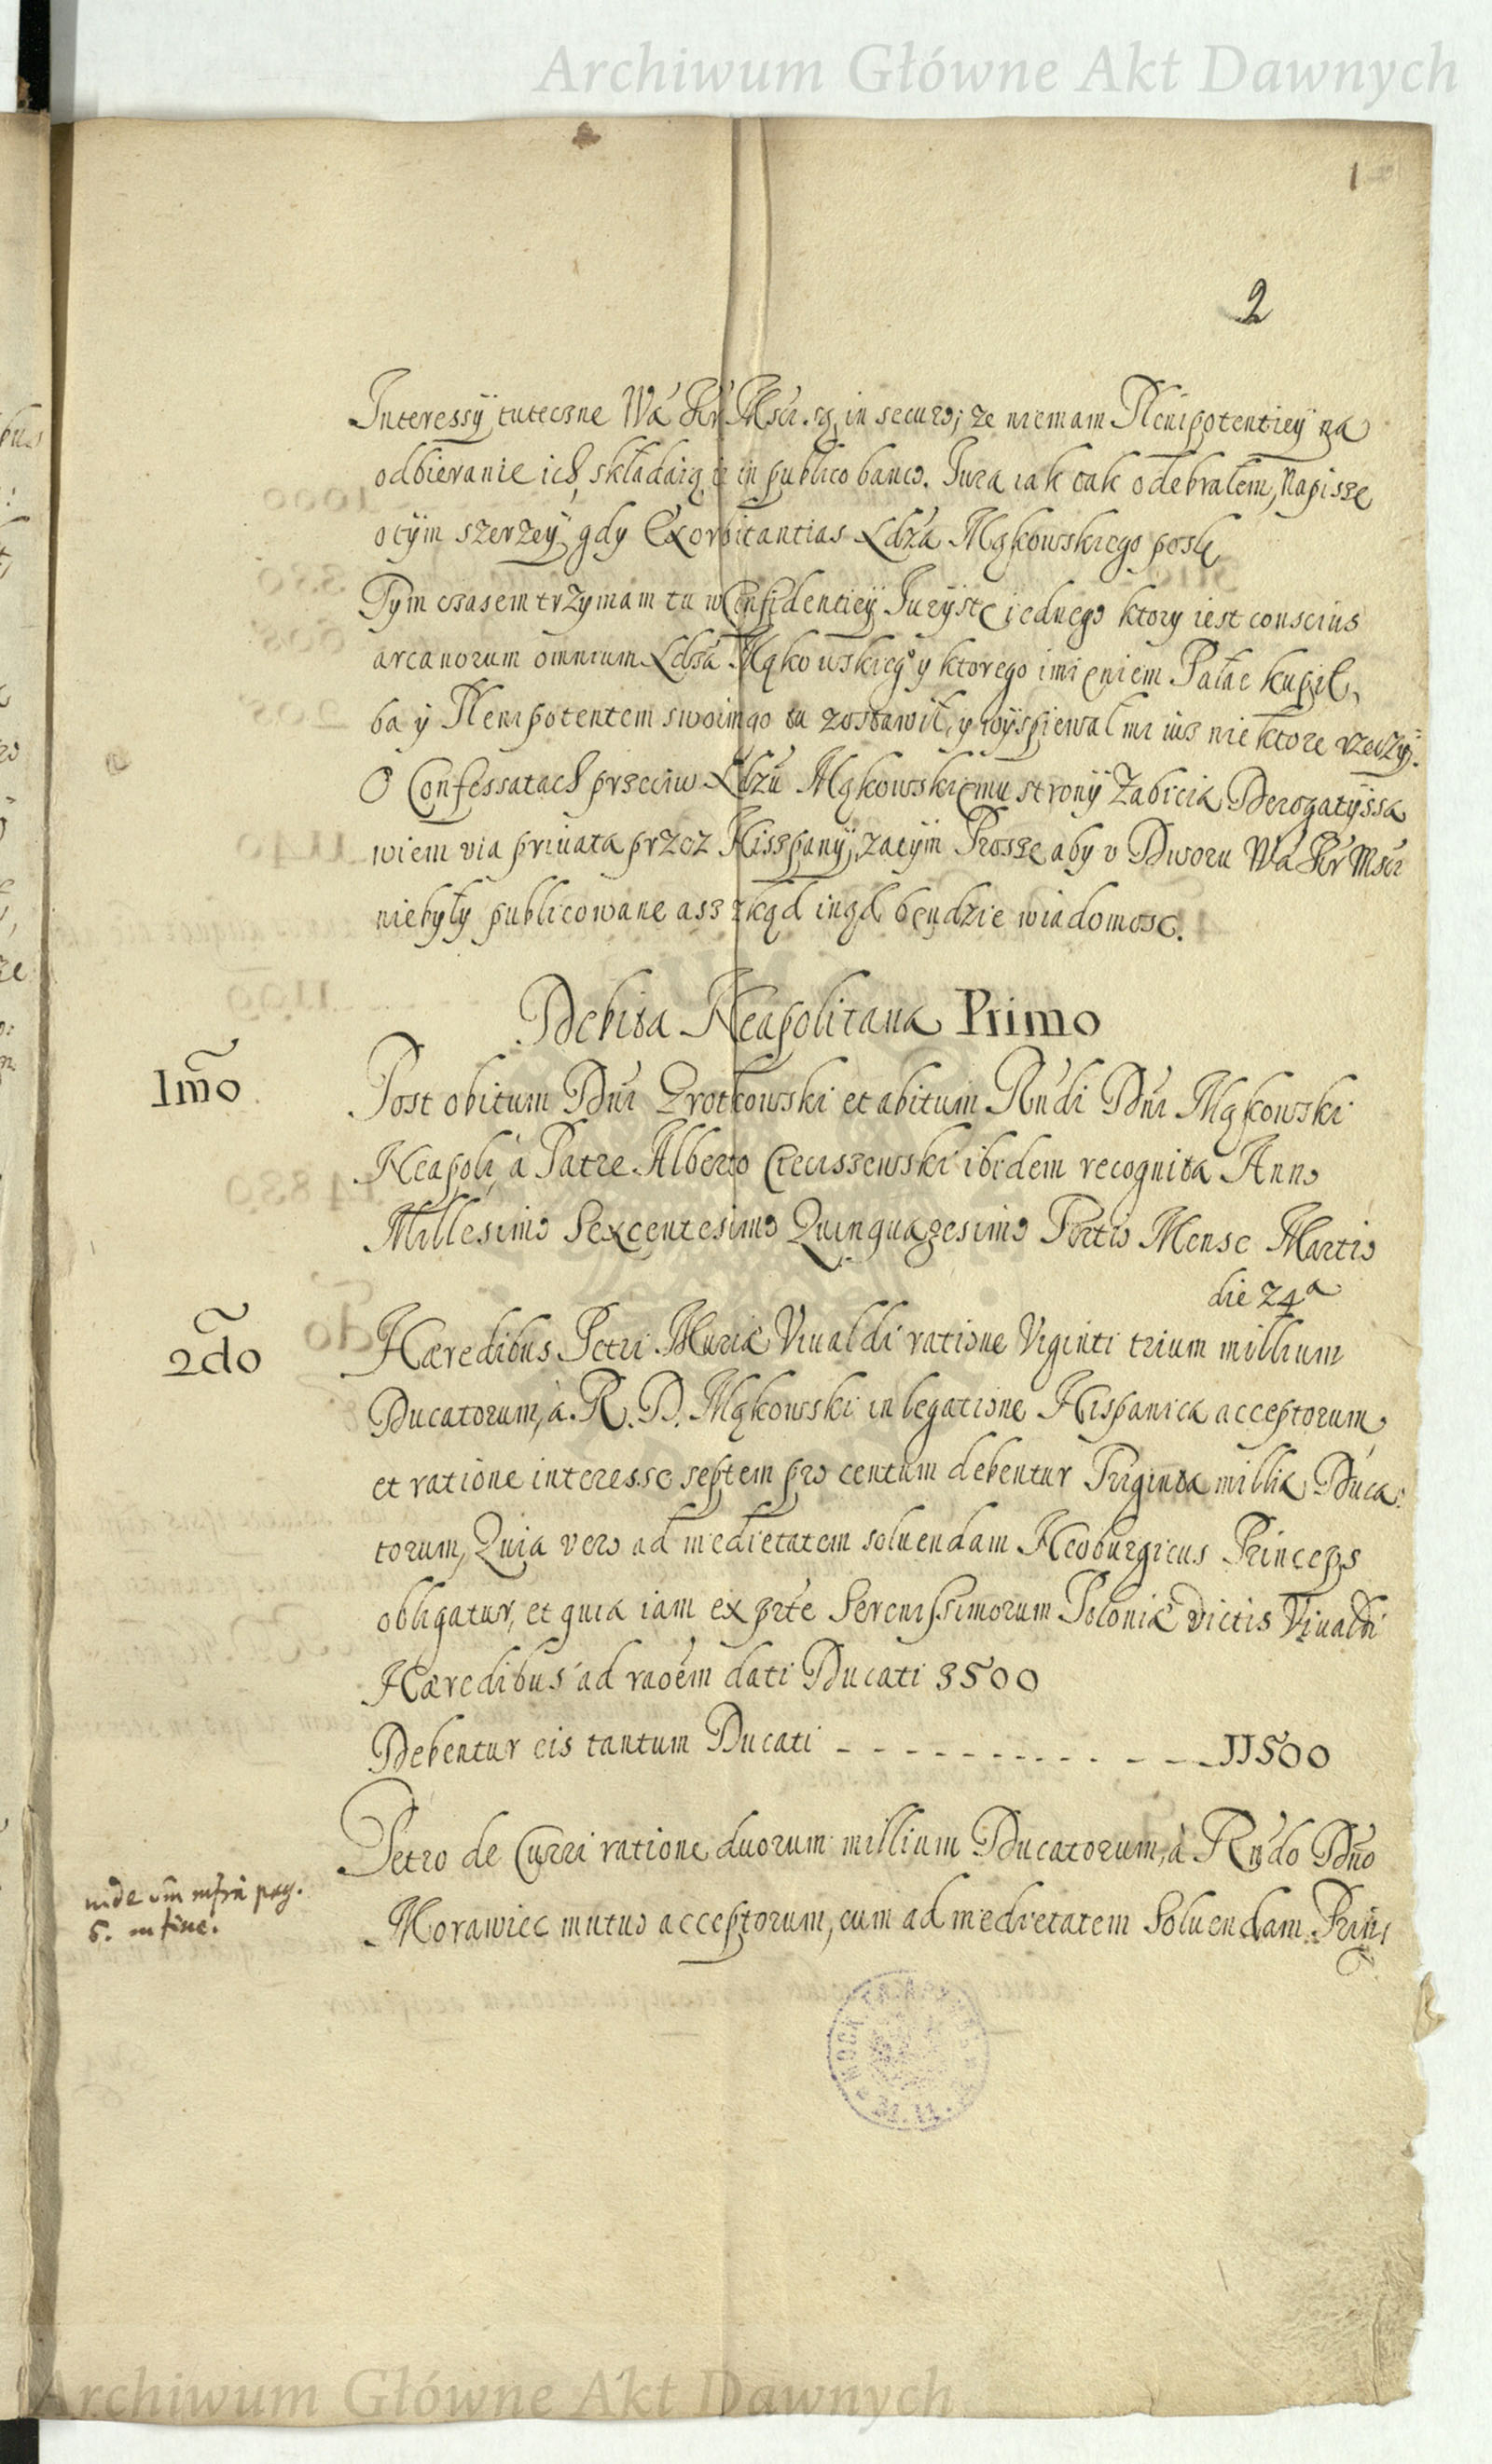 Archiwum Główne Akt Dawnych
1
2
Interessÿ tuteczne Wá Kr Msci. są in securo; ze niemam Plenipotentieÿ na
odbieranie ich, składaią ie in publico banco. Iura iak tak odebrałem, Napisze
otÿm szerzeÿ, gdy Exorbitantias Xdza Mąkowskiego posle
Tym czasem trzymam tu w Confidentieÿ Iuryste iednego ktory iest conscius
arcanorum omnium Xdza Mąkowskieg° y ktorego imieniem Pałac kupił,
ba ÿ Plenipotentem swoim go tu zostawił, y wÿspiewał mi iuz niektore rzeczÿ.
O Confessatach przeciw Xdzu Mąkowskiemu stronÿ Zabicia Derogatÿssa
wiem via priuata przez Hiszpanÿ, zatÿm Prosze aby v Dworu Wá Kr Msci
niebyły publicowane asz zkąd inąd bęndzie wiadomosc.
Debita Neapolitana Primo
1mo
Post obitum Dni Zrotkowski et abitum Rndi Dni Mąkowski
Neapoli, à Patre Alberto Cieciszewski ibidem recognita Anno
Millesimo Sexcentesimo Quinquagesimo Tertio Mense Martio
die 24ᵃ
2do
Hæredibus Petri Mariæ Viualdi ratione Viginti trium millium
Ducatorum, à R. D. Mąkowski in legatione Hispanica acceptorum
et ratione interesse septem pro centum debentur Triginta millia Duca:
torum, Quia vero ad medietatem soluendam Neoburgicus Princeps
obligatur, et quia iam ex prte Serenissimorum Poloniæ dictis Viualdi
Hæredibus ad raoem dati Ducati 3500
Debentur eis tantum Ducati - - - - - - - - - - - - 11500
Petro de Curri ratione duorum millium Ducatorum, à Rndo Dno
uide om infra pag.
6. in fine.
Morawiec mutuo acceptorum, cum ad medietatem Soluendam Prin
Archiwum Główne Akt Dawnych